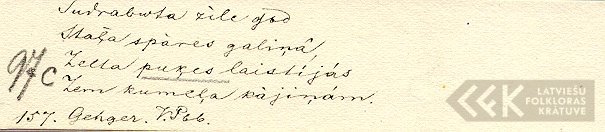 Sudrabota zīle dzied
Staļļa spāres galiņā,
Zelta puķes laistījās
Zem kumeļa kājiņām.
97c
157. Gehger. V.Pbb.
LATVIEŠU
FOLKLORAS
KRĀTUVE